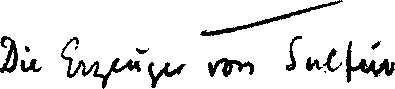 Die Erzeuger vom Sulfur